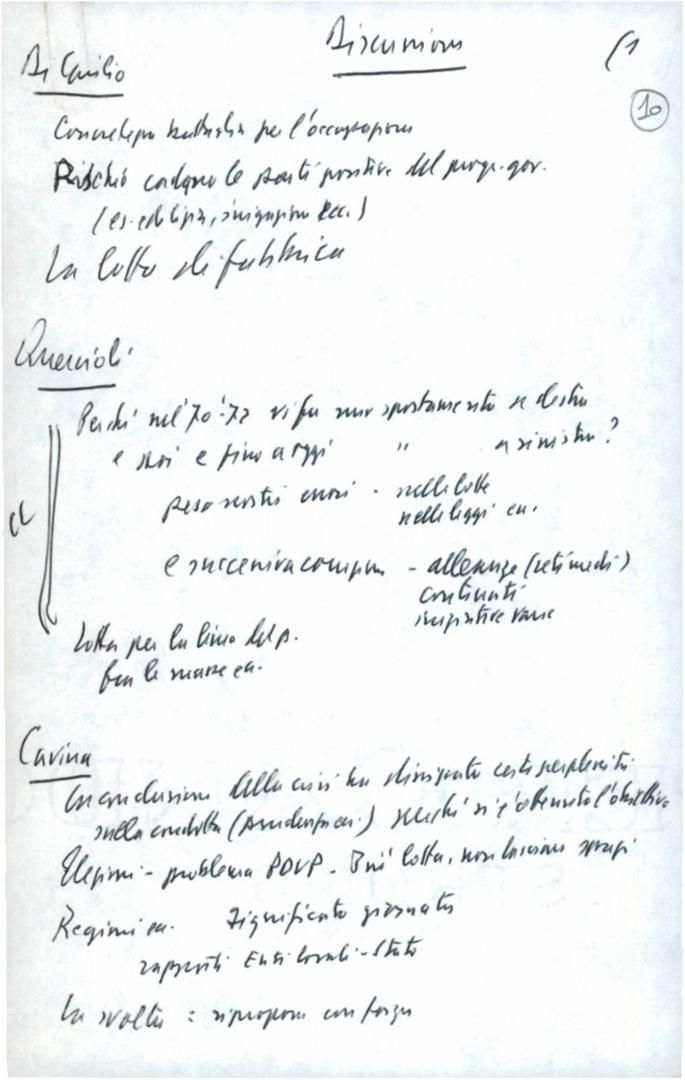 Discussione (1
Di Giulio
10
Concretezza battaglia per l'occupazione
Rischio cadano le parti positive del progr. gov.
(es. edilizia, irrigazione ecc.)
La lotta di fabbrica
Quercioli
Perché nel '70-'72 vi fu uno spostamento a destra
e poi e fino a oggi " a sinistra?
peso nostri errori - nelle lotte
nelle leggi ecc.
CC
e successiva - alleanze (ceti medi)
continuità
iniziative varie
Lotta per la linea del p.
fra le masse ecc.
Cavina
La conclusione della crisi ha dissipato certe perplessità
sulla condotta (prudenza ecc.) perché si è ottenuto l'obiettivo
Elezioni - problema PDUP - lotta, non lasciare spazi
Regioni ecc. Significato giornata
rapporti Enti locali - Stato
La svolta : riproporre con forza